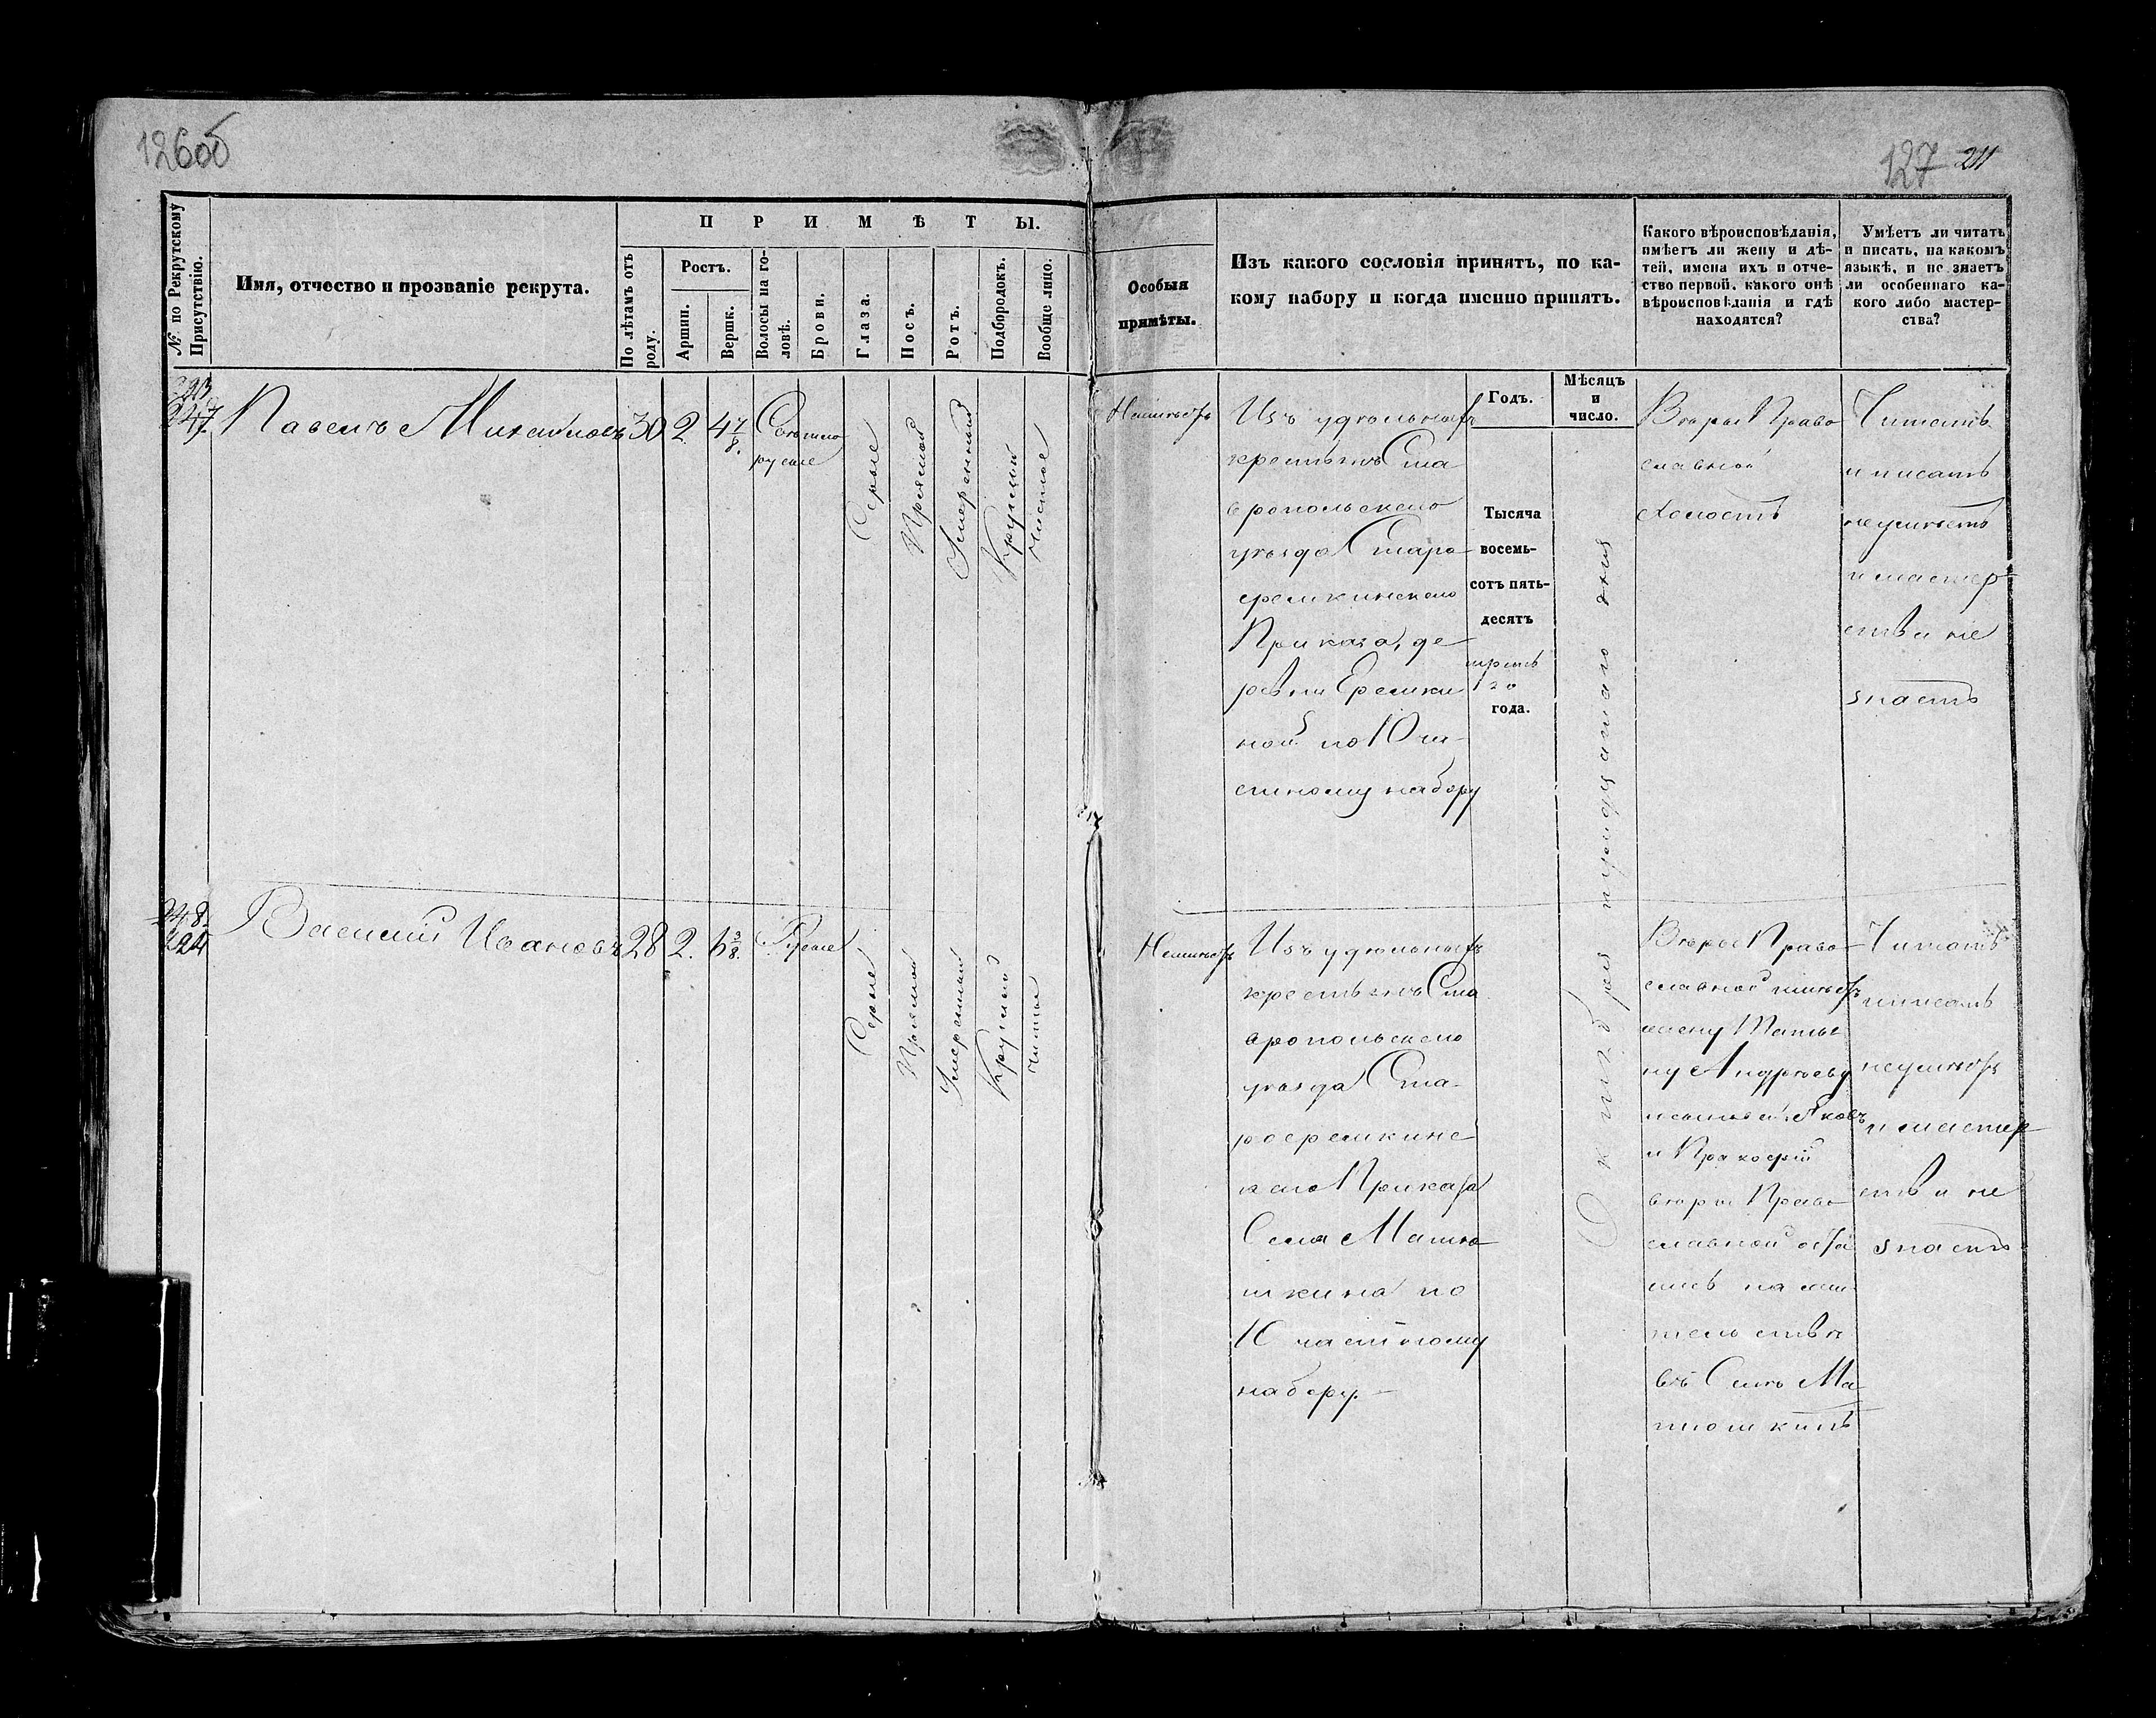 126об
127 211
№ по Рекрутскому Присутствію.
Имя, отчество и прозваніе рекрута.
ПРИМѢТЫ.
По лѣтамъ отъ роду.
Ростъ.
Аршин.
Вершк.
Волосы на головѣ.
Брови.
Глаза.
Носъ.
Ротъ.
Подбородокъ.
Вообще лицо.
Особыя
примѣты.
Изъ какого сословія принятъ, по ка-
кому набору и когда именно принятъ.
Какого вѣроисповѣданія,
имѣетъ ли жену и дѣ-
тей, имена ихъ и отче-
ство первой, какого онѣ
вѣроисповѣданія и гдѣ
находятся?
Умѣетъ ли читать
и писать, на какомъ
языкѣ, и не знаетъ
ли особеннаго ка-
кого либо мастер-
ства?
Годъ.
Мѣсяцъ
и
число.
247
Павелъ Михайловъ 30 2 4 7/8
Свѣтло
русые
Серые
Прямой
Умеренный
Круглый
Чистое
Неимѣетъ
Изъ удѣльныхъ
крестьянъ Ста
вропольскаго
уѣзда Старо
еремкинскаго
Приказа, де
ревни Еремки
ной по 10 ча
стному набору
Тысяча
восемь-
сотъ пять-
десятъ
третьяго
года.
Октября тридцатаго дня
Вѣры Право
славной
Холостъ
Читать
и писать
неумѣетъ
и мастер
ства не
знаетъ
248
224
Василій Ивановъ 28 2. 6 3/8.
Русые
Серые
Прямой
Умеренный
Круглый
Чистое
Неимѣетъ
Изъ удѣльныхъ
крестьянъ Ста
вропольскаго
уѣзда Ста-
роеремкинс
каго Приказа
Села Матю
шкина по
10 частному
набору.
Вѣры Право
славной имѣетъ
жену Татья
ну Андрѣеву
и сыновей Яковъ
и Пракофій
вѣры Право
славной оста
лись на жи
тельствѣ
въ Селѣ Ма
тюшкинѣ
Читать
и писать
неумѣетъ
и мастер
ства не
знаетъ